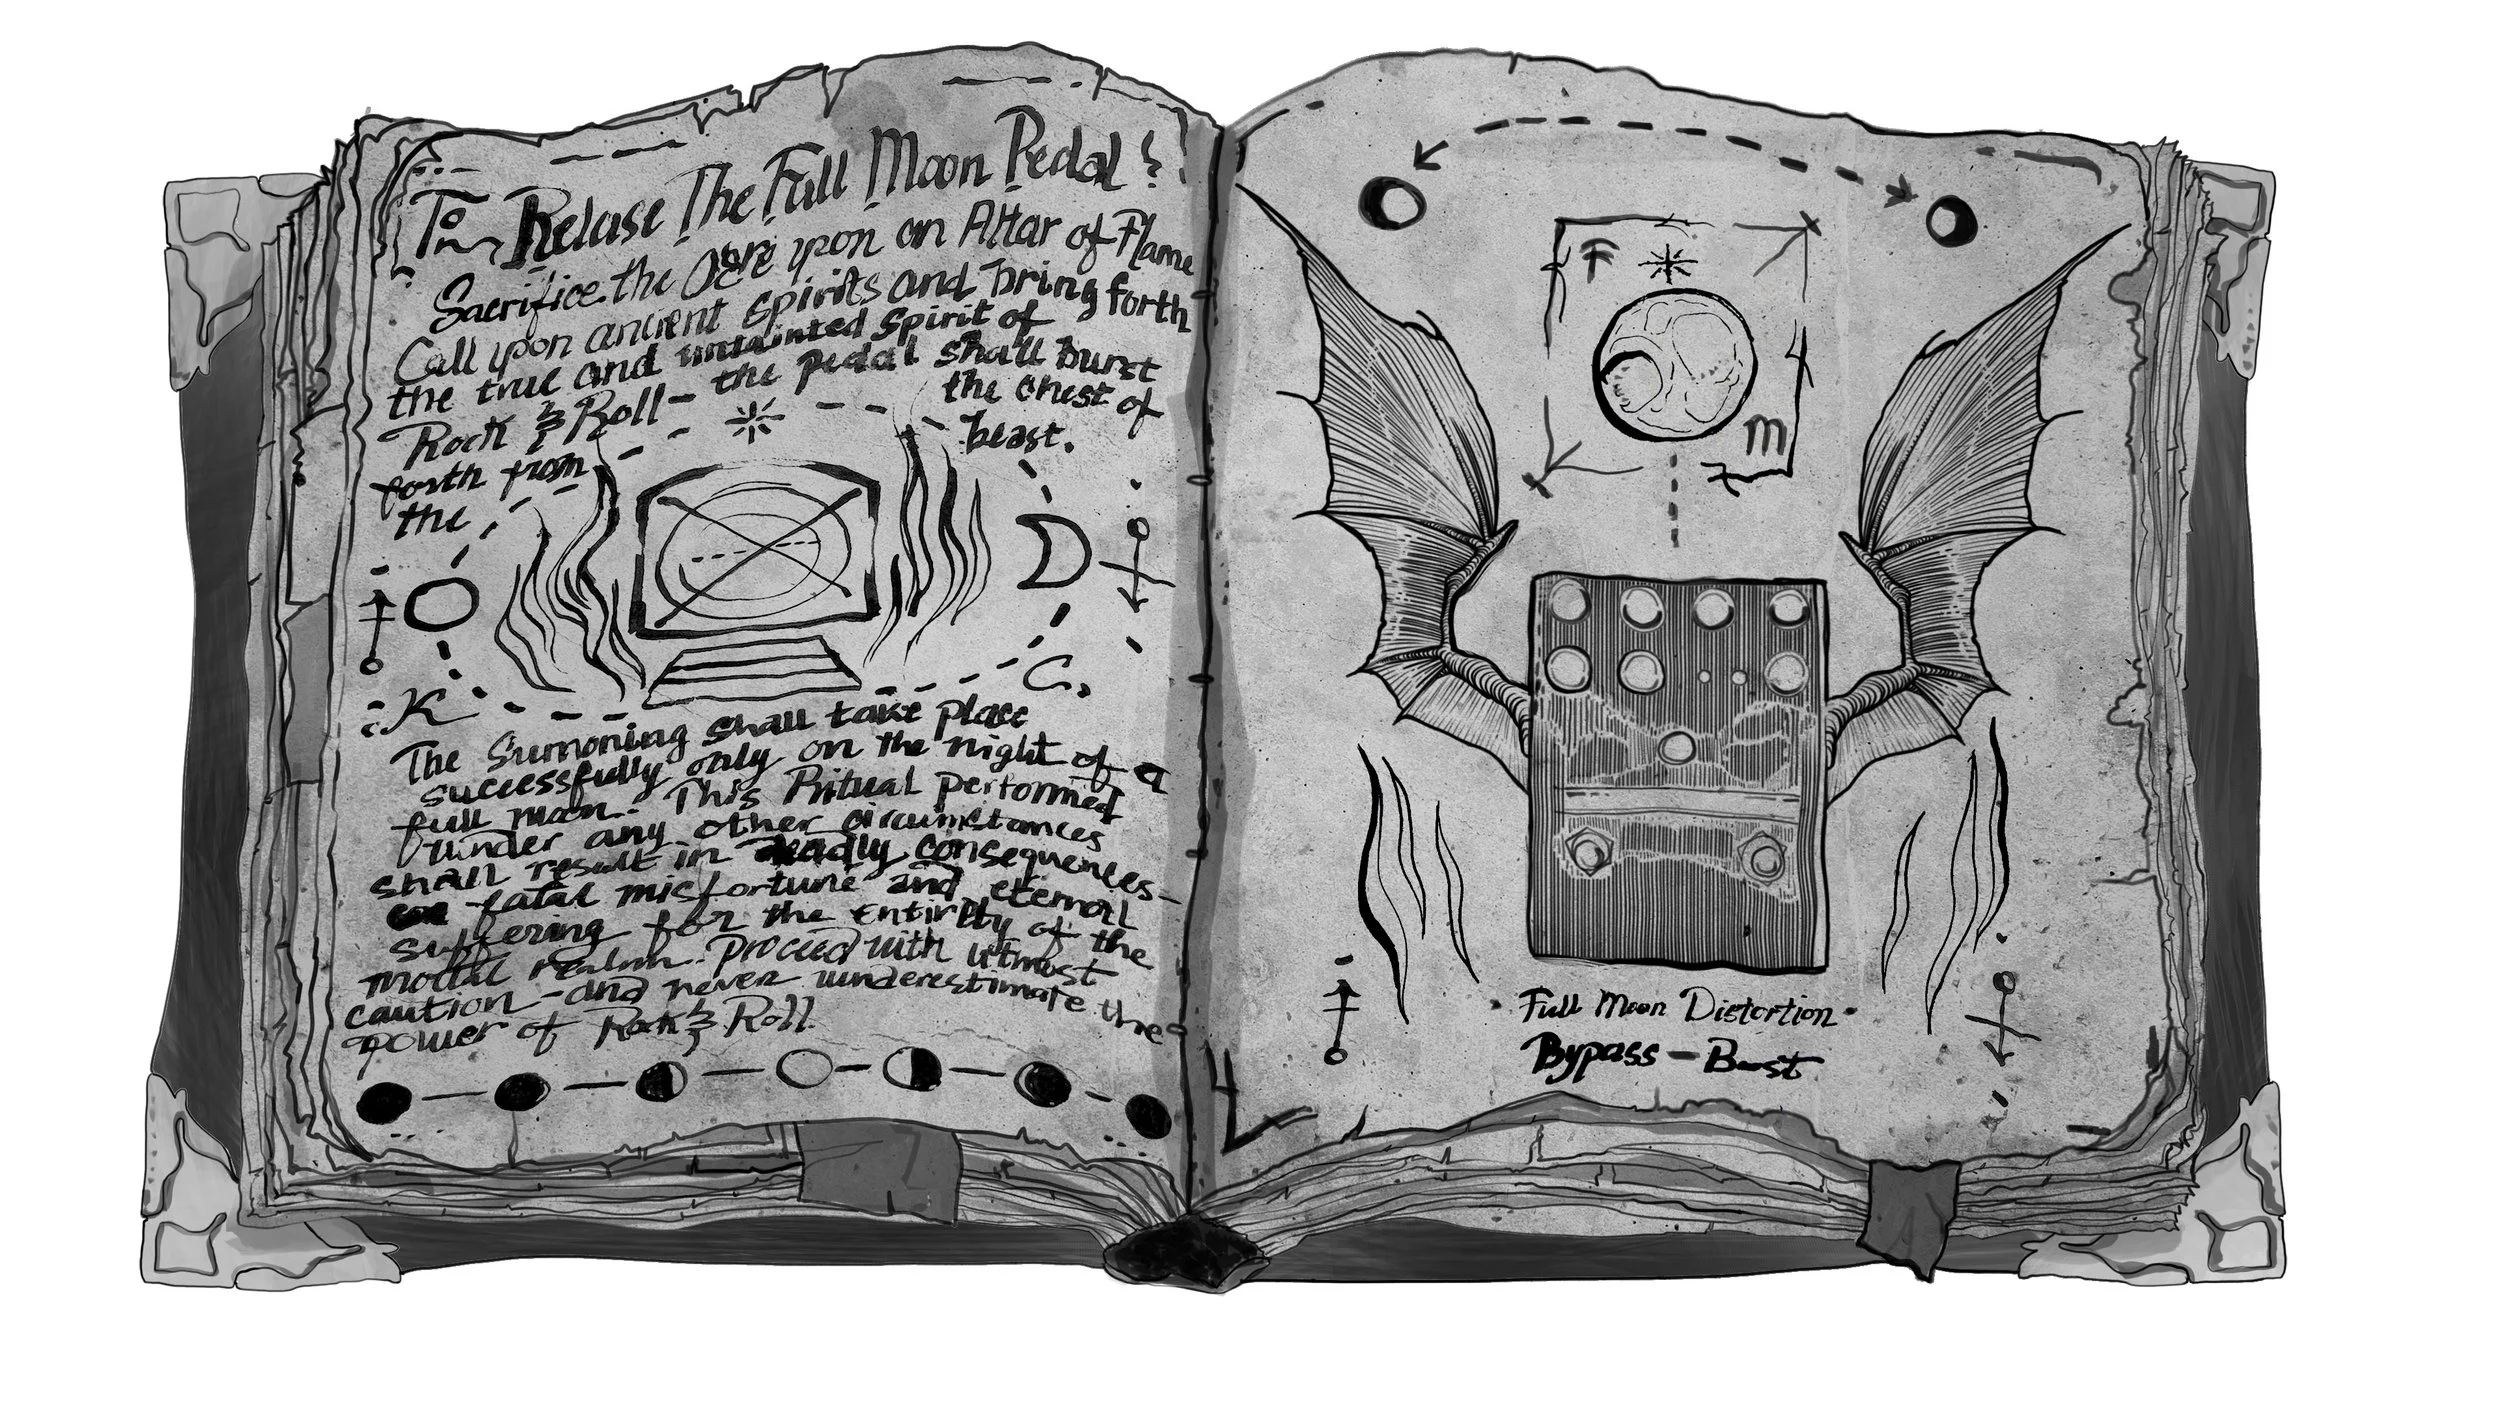 To Relase The Full Moon Pedal
Sacrifice the Ogre upon an Altar of Flame
Call upon ancient spirits and bring forth
the true and untainted spirit of
Rock & Roll - the pedal shall burst
forth from the chest of
the beast.
K
C.
The Sumoning shall take place
successfully only on the night of a
full moon. This Ritual performed
under any other circumstances
shall result in deadly consequences -
fatal misfortune and eternal
suffering for the entirety of the
modal realm. Proceed with utmost
caution - and never underestimate the
power of Rock & Roll.
F
m
Full Moon Distortion
Bypass - Boost